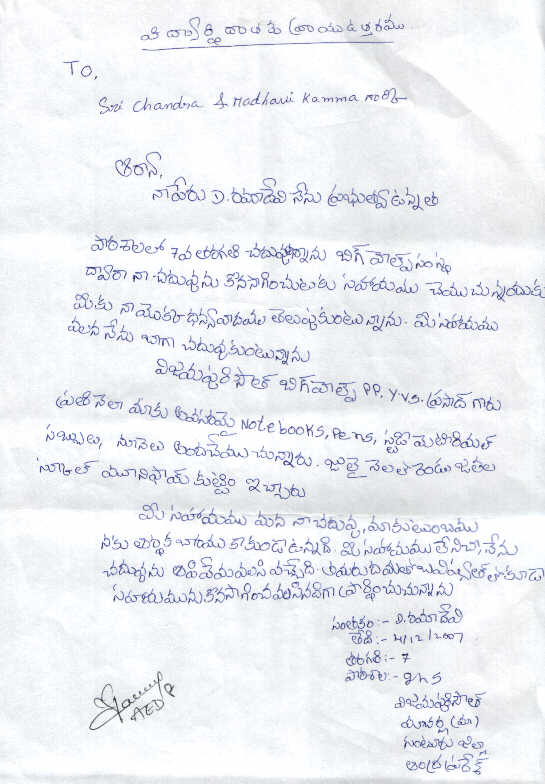 విద్యార్థి దాతకు వ్రాయు ఉత్తరము
TO,
Sri Chandra & Madhavi Kamma గార్కి
ఆర్యా,
నాపేరు D. రమాదేవి నేను ప్రభుత్వ ఉన్నత
పాఠశాలలో 7వ తరగతి చదువుచున్నాను బిగ్ హెల్ప్ సంస్థ
ద్వారా నా చదువును కొనసాగించుటకు సహాయము చేయుచున్నందుకు
మీకు నాయొక్క ధన్యవాదము తెలుపుకుంటున్నాను. మీ సహాయము
వలన నేను బాగా చదువుకుంటున్నాను
విజయపురిసౌత్ బిగ్ హెల్ప్ PP. Y.V.S. ప్రసాద్ గారు
ప్రతి నెలా మాకు అవసరమై Notebooks, Pens, స్టడి మెటీరియల్
సబ్బులు, నూనెలు అందచేయుచున్నారు. జులై నెలలో రెండు జతల
స్కూల్ యూనిఫామ్ కుట్టించి ఇచ్చారు
మీ సహాయము వలన నా చదువు, మా కుటుంబము
నకు ఆర్థిక భారము కాకుండా ఉన్నది. మీ సహాయము లేనిచో నేను
చదువును ఆపివేయవలసి వచ్చేది. తమరు దయతో భవిష్యత్ లో కూడా
సహాయమును కొనసాగించవలసినదిగా ప్రార్థించుచున్నాను
సంతకం:- D. రమాదేవి
తేది:- 4/12/2007
తరగతి:- 7
పాఠశాల:- ghs
విజయపురిసౌత్
మాచర్ల (మం)
గుంటూరు జిల్లా
ఆంధ్రప్రదేశ్
AEDP